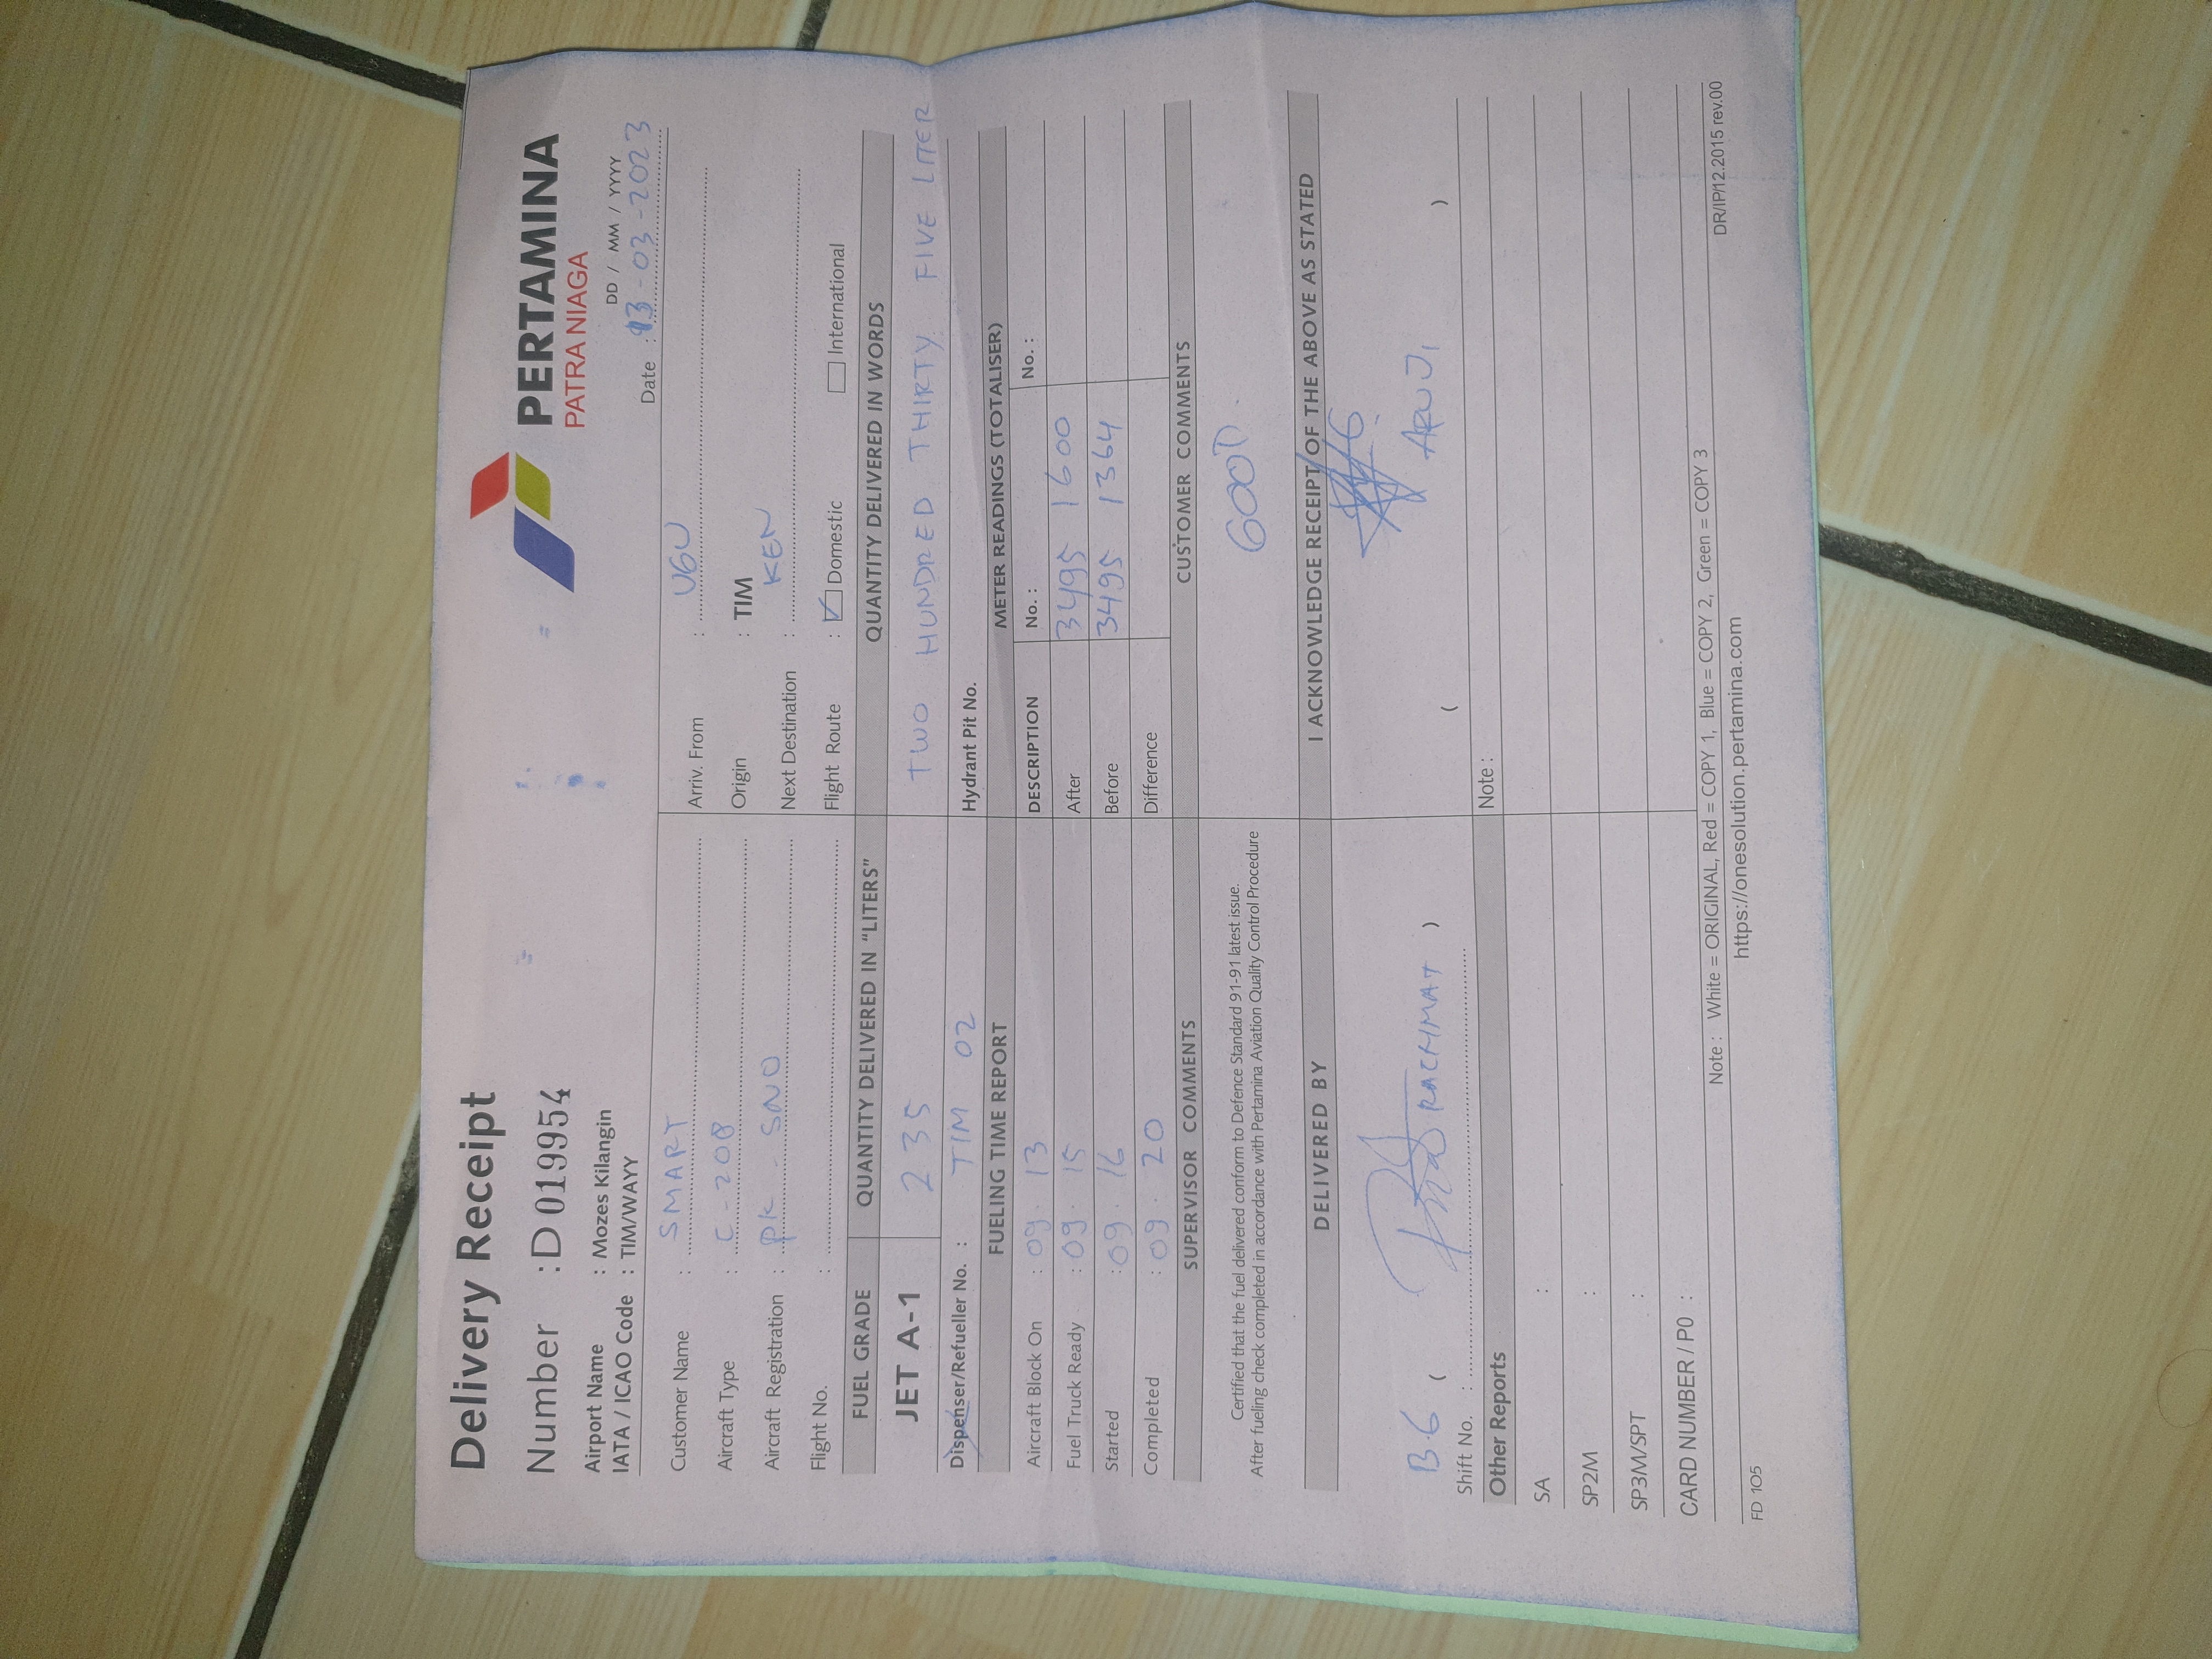 Delivery Receipt
PERTAMINA
PATRA NIAGA
Number : D 019954
Airport Name : Mozes Kilangin
DD / MM / YYYY
IATA / ICAO Code : TIM/WAYY
Date : 13-03-2023
Customer Name : SMART
Arriv. From : UGU
Aircraft Type : C-208
Origin : TIM
Aircraft Registration : PK - SNO
Next Destination : KEN
Flight No. :
Flight Route : Domestic International
FUEL GRADE QUANTITY DELIVERED IN "LITERS" QUANTITY DELIVERED IN WORDS
JET A-1 235 TWO HUNDRED THIRTY FIVE LITER
Dispenser/Refueller No. : TIM 02 Hydrant Pit No.
FUELING TIME REPORT METER READINGS (TOTALISER)
Aircraft Block On : 09.13 DESCRIPTION No. : No. :
Fuel Truck Ready : 09.15 After 3495 1600
Started : 09.16 Before 3495 1364
Completed : 09.20 Difference
SUPERVISOR COMMENTS CUSTOMER COMMENTS
Certified that the fuel delivered conform to Defence Standard 91-91 latest issue.
After fueling check completed in accordance with Pertamina Aviation Quality Control Procedure
GOOD.
DELIVERED BY I ACKNOWLEDGE RECEIPT OF THE ABOVE AS STATED
B.6 ( RACHMAT ) ( )
Shift No. :
Other Reports Note :
SA :
SP2M :
SP3M/SPT :
CARD NUMBER / P0 :
Note : White = ORIGINAL, Red = COPY 1, Blue = COPY 2, Green = COPY 3
FD 105 https://onesolution.pertamina.com DR/IP/12.2015 rev.00